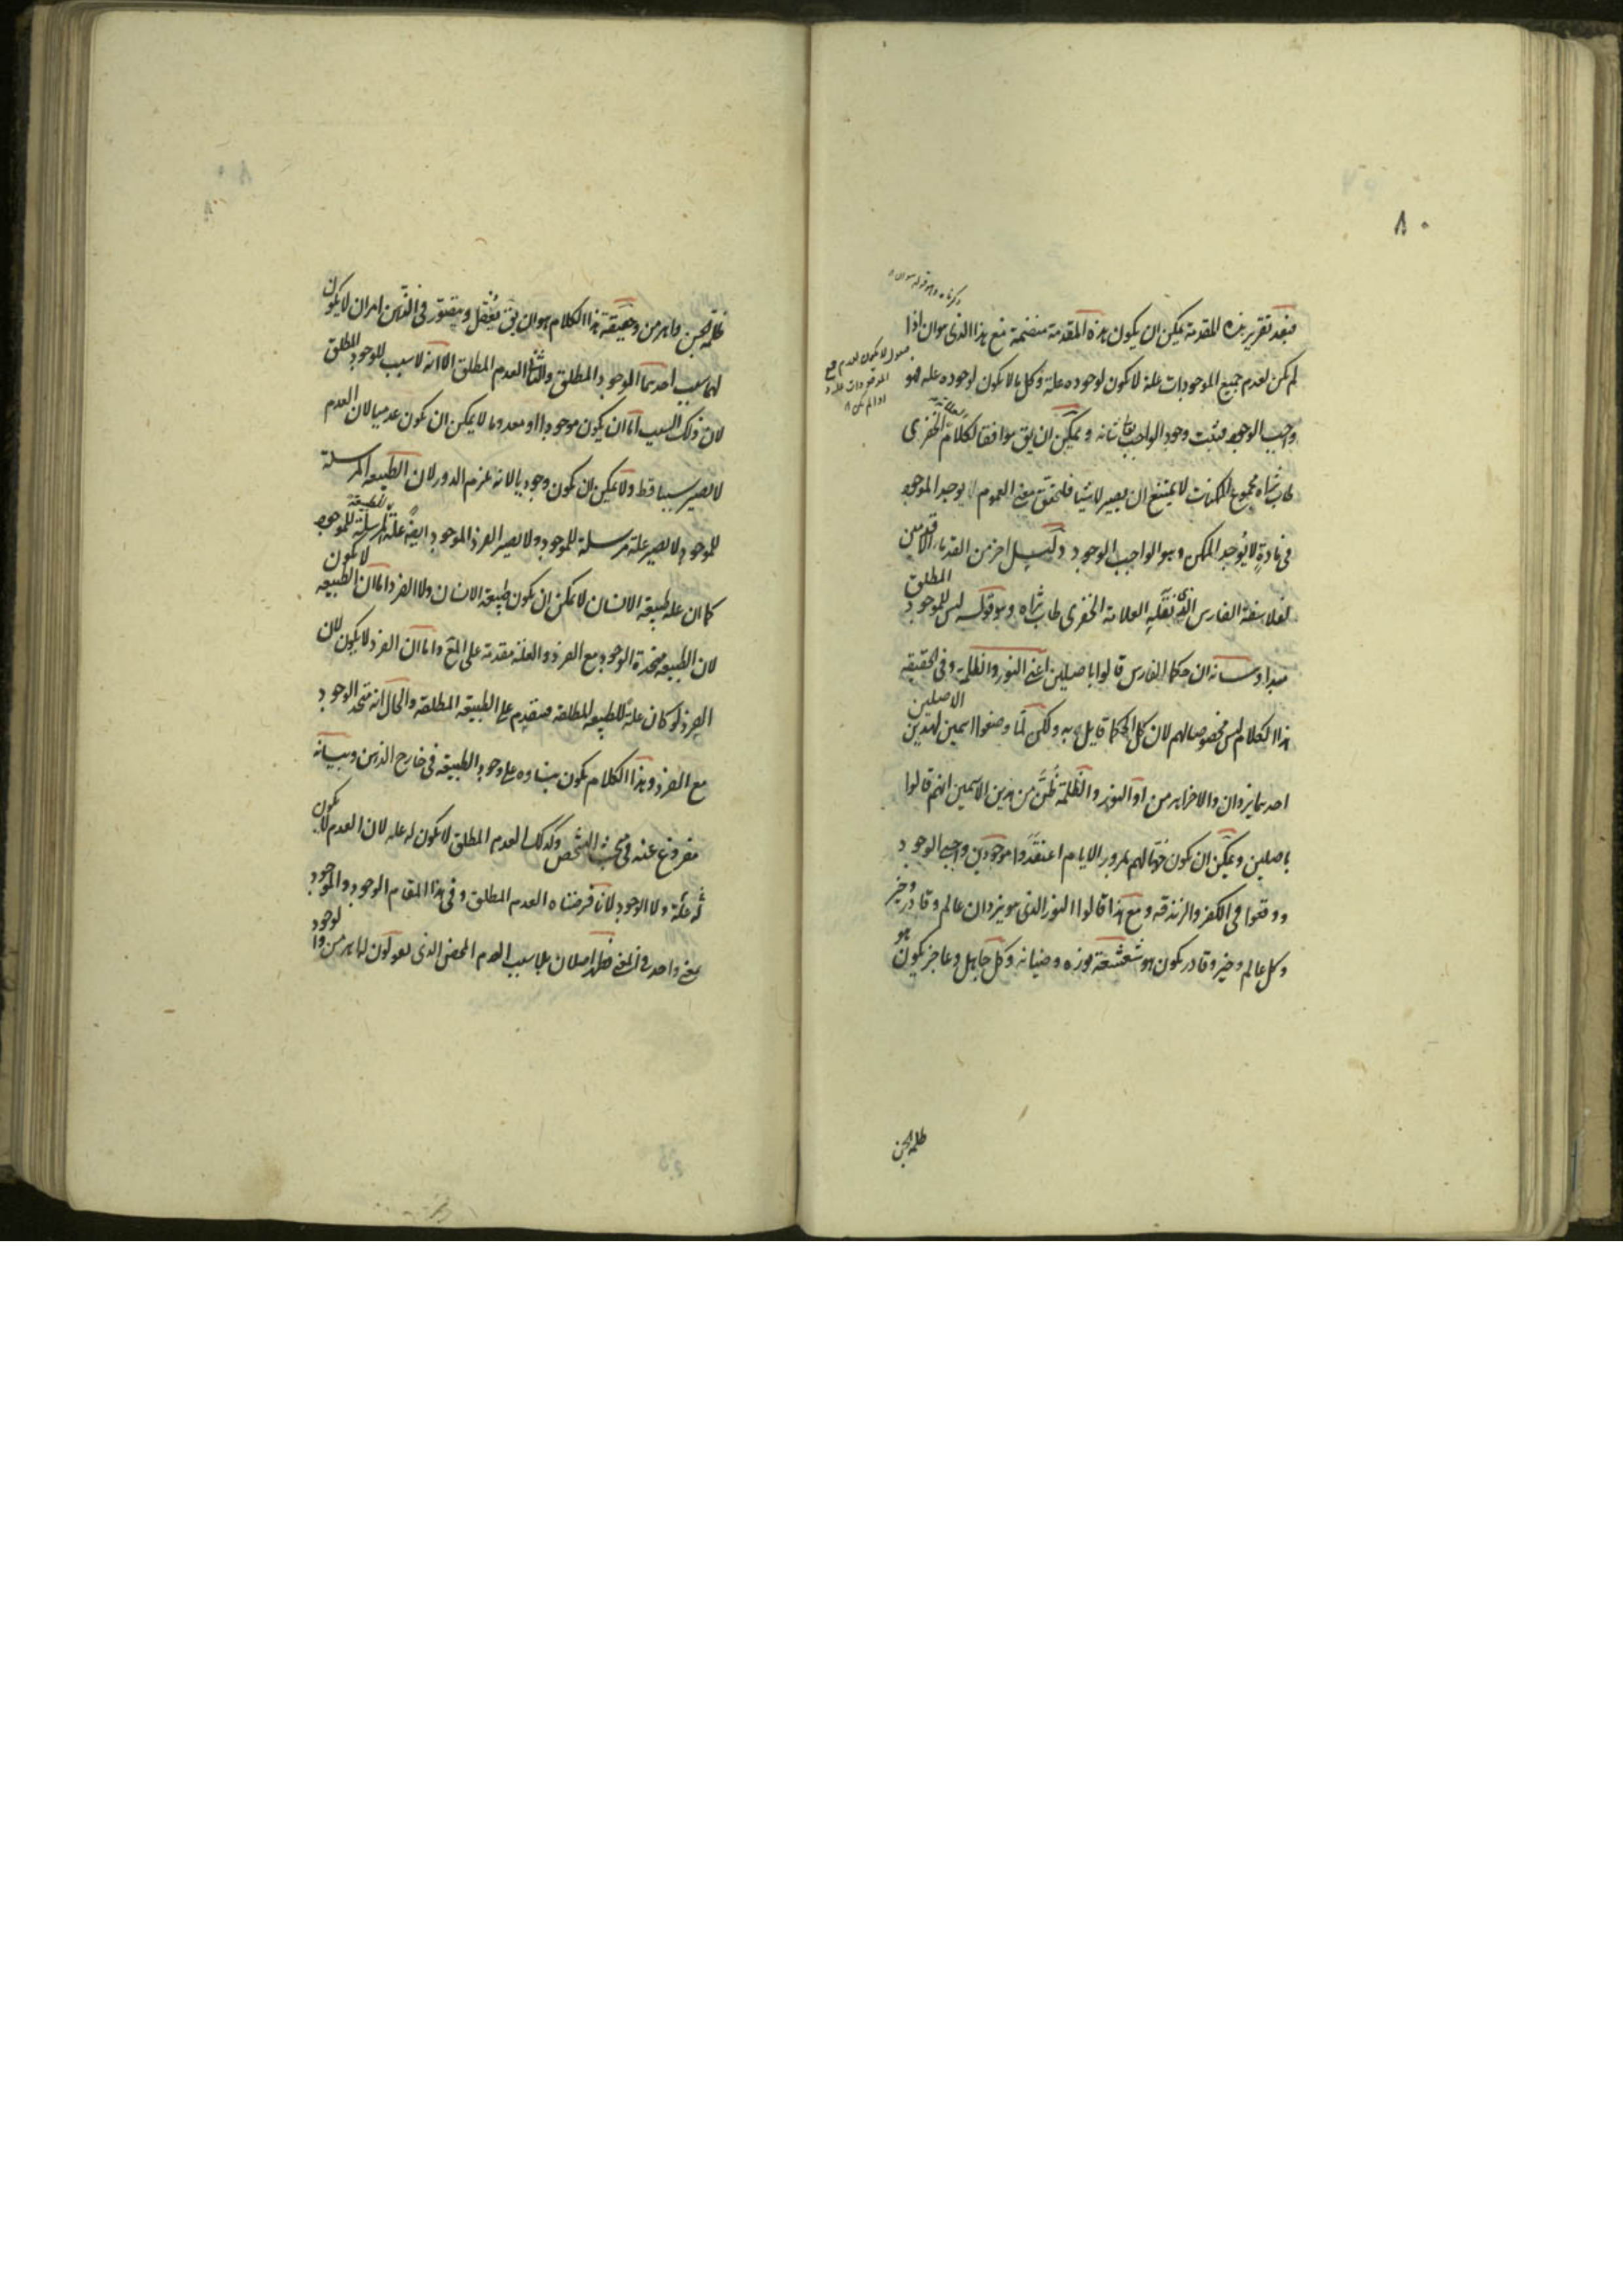 ٨٠
فبعد تقرير هذه المقدمة يمكن ان يكون هذه المقدمة منضمة مع هذا الذى هو ان اذا
لم يكن لعدم جميع الموجودات علة لا يكون لوجوده علة وكل ما لا يكون لوجوده علة فهو
واجب الوجود فيثبت وجود الواجب تعالى شانه و يمكن ان يق موافقا لكلام الخفرى
طاب ثراه مجموع الممكنات لا يمتنع ان يصير لا شيئا فلتحقق معنى العموم لا يوجد الموجود
فى مادة لا يوجد الممكن وهو الواجب الوجود دليل اخر من القدماء الاقدمين
لفلاسفة الفارس الذى نقله العلامة الخفرى طاب ثراه وهو قوله ليس للموجود المطلق
مبدا وبيانه ان حكماء الفارس قالوا باصلين اعنى النور والظلمة وفى الحقيقة
هذا الكلام ليس مخصوصا لهم لان كل الحكماء قايل به ولكن لما وضعوا اسمين لهذين الاصلين
احدهما يزدان والاخر اهرمن او النور والظلمة ظن من هذين الاسمين انهم قالوا
باصلين ويمكن ان يكون جهالهم بمرور الايام اعتقدوا موجودين واجبى الوجود
ووقعوا فى الكفر والزندقة ومع هذا قالوا النور الذى هو يزدان عالم وقادر وخير
وكل عالم وخير وقادر يكون هو شعشعة نوره وضيائه وكل جاهل وعاجز يكون هو
ظلمة الجن
ظلمة الجن واهرمن وحقيقة هذا الكلام هو ان يق يعقل ويتصور فى الذهن امران لا يكون
لهما سبب احدهما الموجود المطلق والثانى العدم المطلق الا انه لا سبب للوجود المطلق
لان ذلك السبب اما ان يكون موجودا او معدوما لا يمكن ان يكون عدميا لان العدم
لا يصير سببا قط ولا يمكن ان يكون وجوديا لانه يلزم الدور لان الطبيعة المرسلة
للموجود لا يصير علة مرسلة للموجود ولا يصير الفرد الموجود ايضا علة للطبيعة المرسلة للموجود
كما ان علة طبيعة الانسان لا يمكن ان يكون طبيعة الانسان ولا الفرد اما ان الطبيعة لا يكون
لان الطبيعة متحدة الوجود مع الفرد والعلة مقدمة على المع واما ان الفرد لا يكون لان
الفرد لو كان علة للطبيعة المطلقة فيتقدم على الطبيعة المطلقة والحال انه متحد الوجود
مع الفرد وهذا الكلام يكون بناوه على وجود الطبيعة فى خارج الذهن وبيانه
مفروغ عنه فى مبحث التشخص وكذلك العدم المطلق لا يكون له علة لان العدم لا يكون
له علة ولا الوجود لانا فرضناه العدم المطلق وفى هذا المقام الوجود والموجود
بمعنى واحد فظهر اصلان بلا سبب العدم المحض الذى يقولون لها اهرمن والوجود